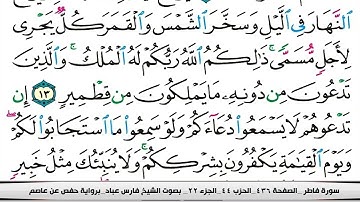 ٱلنَّهَارَ فِي ٱلَّيْلِ وَسَخَّرَ ٱلشَّمْسَ وَٱلْقَمَرَ كُلٌّ يَجْرِي
لِأَجَلٍ مُّسَمًّى ۚ ذَٰلِكُمُ ٱللَّهُ رَبُّكُمْ لَهُ ٱلْمُلْكُ ۚ وَٱلَّذِينَ
تَدْعُونَ مِن دُونِهِۦ مَا يَمْلِكُونَ مِن قِطْمِيرٍ ١٣ إِن
تَدْعُوهُمْ لَا يَسْمَعُوا۟ دُعَآءَكُمْ وَلَوْ سَمِعُوا۟ مَا ٱسْتَجَابُوا۟ لَكُمْ ۖ
وَيَوْمَ ٱلْقِيَٰمَةِ يَكْفُرُونَ بِشِرْكِكُمْ ۚ وَلَا يُنَبِّئُكَ مِثْلُ خَبِيرٍ
سورة فاطر _ الصفحة ٤٣٦ _ الحزب ٤٤ _ الجزء ٢٢ _ بصوت الشيخ فارس عباد _ برواية حفص عن عاصم